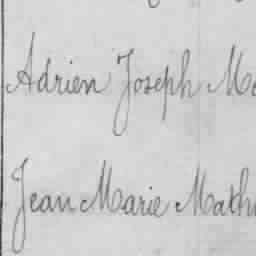 Adrien Joseph
Jean Marie